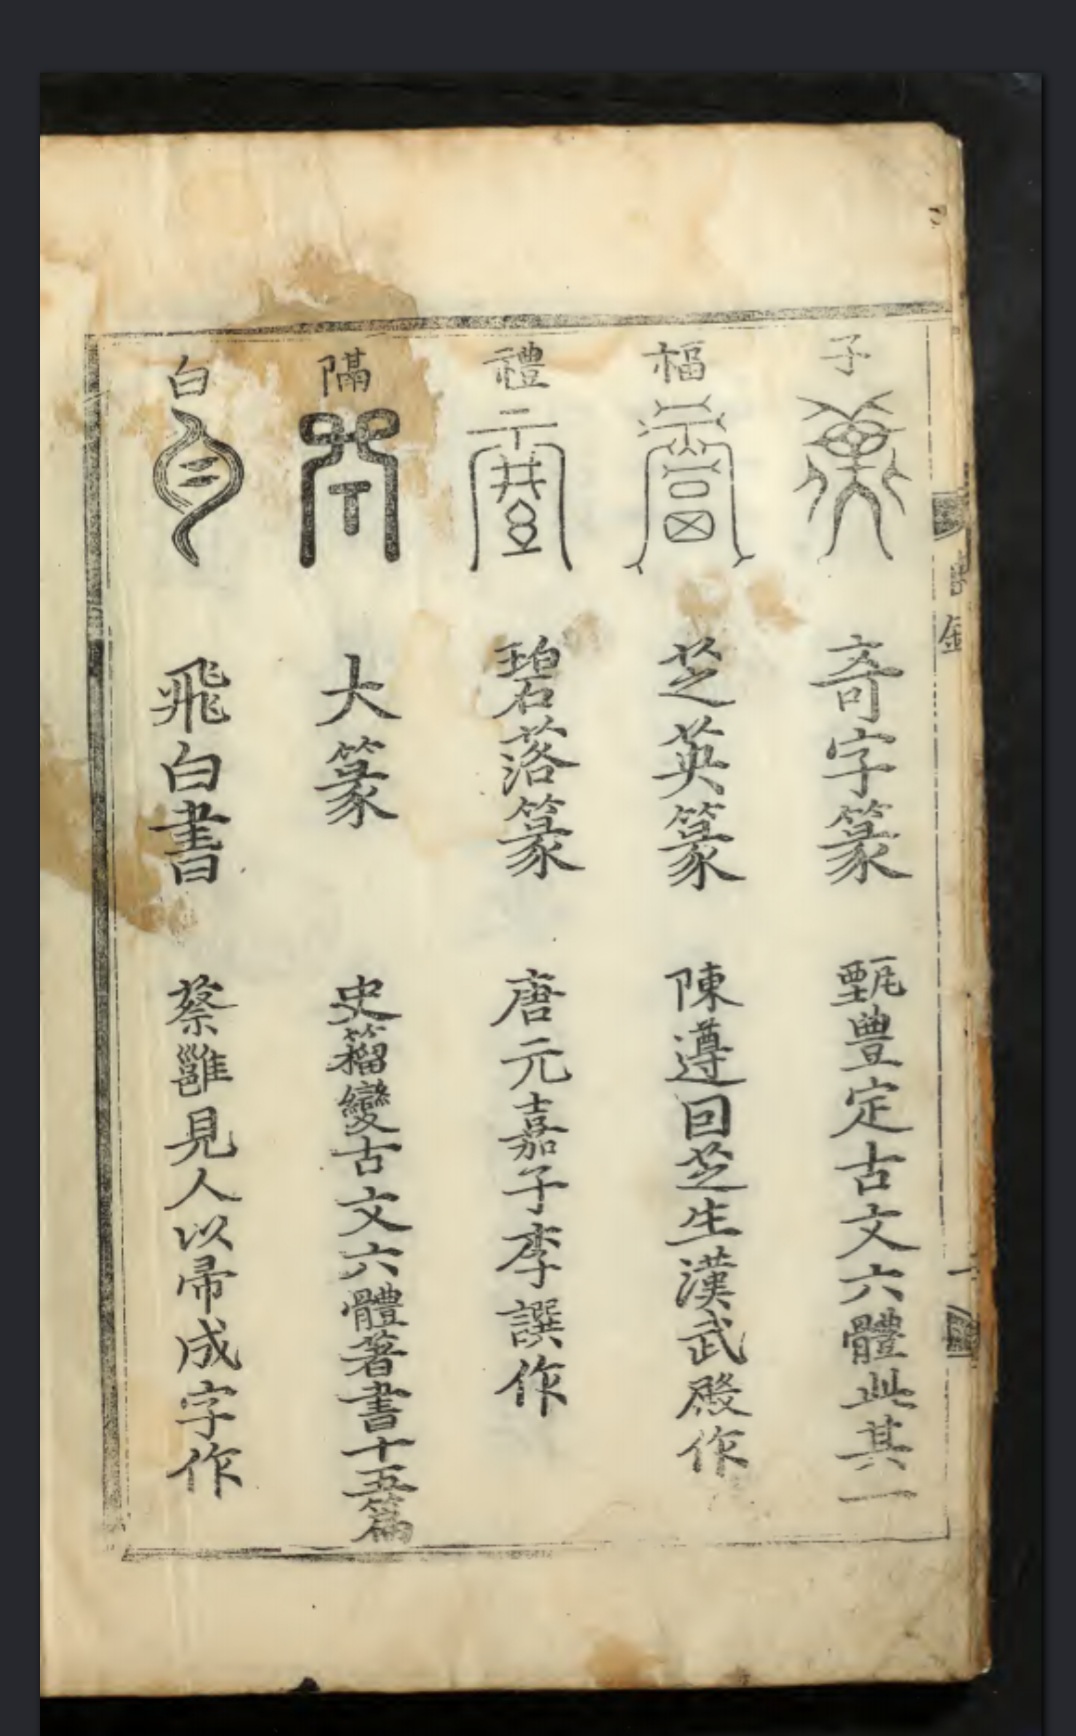 子 奇字篆 甄豊定古文六體此其一
福 芝英篆 陳遵因芝生漢武殿作
禮 碧落篆 唐元嘉子李譔作
隔 大篆 史籀變古文六體著書十五篇
白 飛白書 蔡邕見人以帚成字作